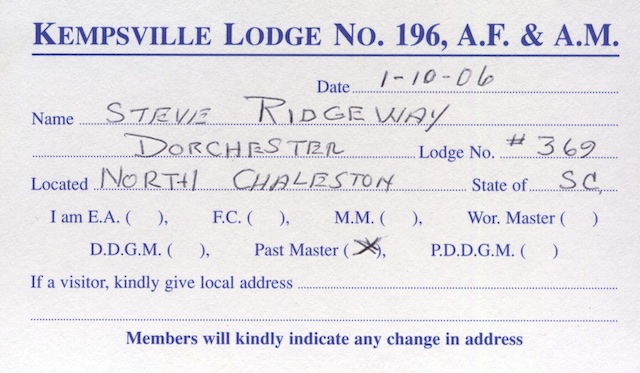 KEMPSVILLE LODGE NO. 196, A.F. & A.M.
Date 1-10-06
Name STEVE RIDGEWAY
DORCHESTER Lodge No. # 369
Located NORTH CHALESTON State of SC,
I am E.A. ( ), F.C. ( ), M.M. ( ), Wor. Master ( )
D.D.G.M. ( ), Past Master ( X ), P.D.D.G.M. ( )
If a visitor, kindly give local address
Members will kindly indicate any change in address